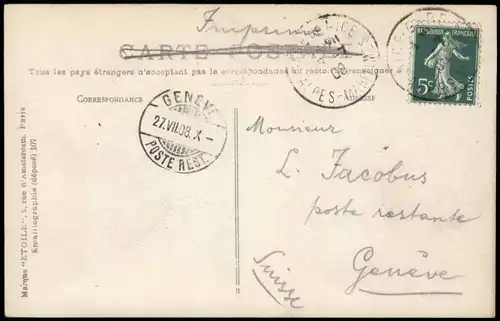 Imprimé
CARTE POSTALE
Tous les pays étrangers n'acceptent pas la correspondance au recto. (Se renseigner à
CORRESPONDANCE
GENÈVE
27.VII.08.X–
POSTE REST.
NICE
ALPES-MAR
RÉPUBLIQUE FRANÇAISE
5c
POSTES
Monsieur
L. Jacobus
poste restante
Genève
Suisse
Marque "ETOILE", 5, rue d'Amsterdam, Paris
Émailliographie (déposé) 107